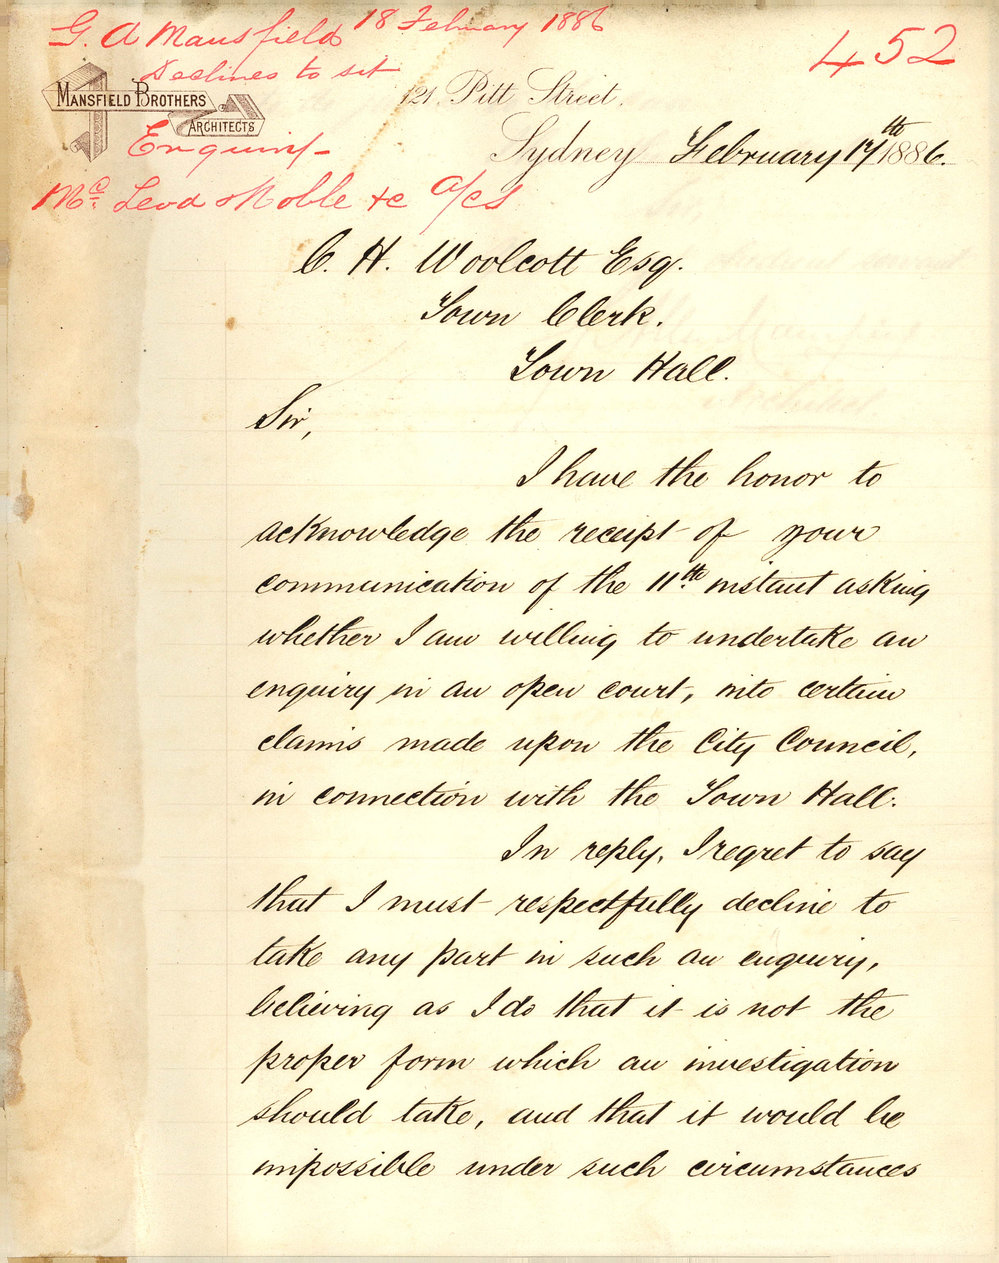 G. A Mansfield 18 February 1886
452
Declines to sit
MANSFIELD BROTHERS
ARCHITECTS
121 Pitt Street.
Enquiry
Sydney February 17th 1886.
Mc. Leod & Noble &c a/cs
C. H. Woolcott Esq.
Town Clerk.
Town Hall.
Sir,
I have the honor to
acknowledge the receipt of your
communication of the 11th instant asking
whether I am willing to undertake an
enquiry in an open court, into certain
claims made upon the City Council,
in connection with the Town Hall.
In reply, I regret to say
that I must respectfully decline to
take any part in such an enquiry,
believing as I do that it is not the
proper form which an investigation
should take, and that it would be
impossible under such circumstances